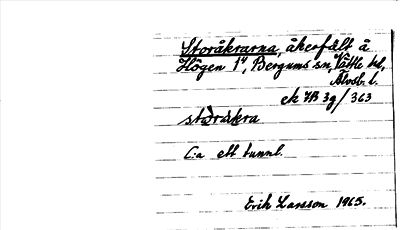 Storåkrarna, åkerfält å
Högen 1⁴, Bergums sn, Vättle hd,
Älvsb. l.
ek 7B 3g/363
storåkra
C:a ett tunnl.
Erik Larsson 1965.